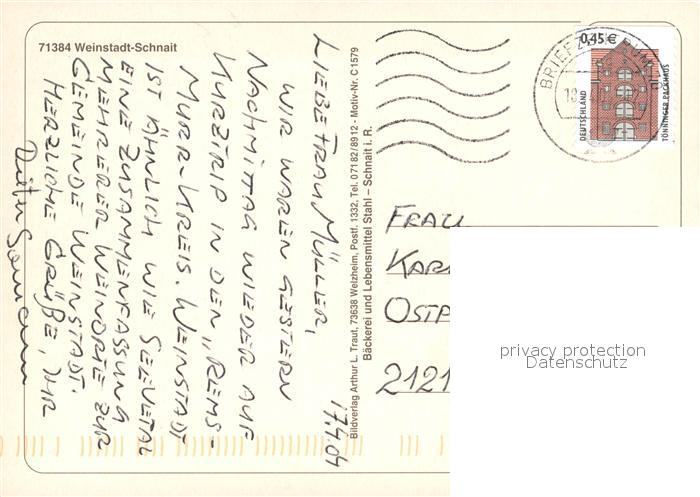 71384 Weinstadt-Schnait
17.4.04
LIEBE FRAU MÜLLER,
WIR WAREN GESTERN
NACHMITAG WIEDER AUF
KURZTRIP IN DEN „REMS-
MURR-KREIS. WEINSTADT
IST ÄHNLICH WIE SEEVETAL
EINE ZUSAMMENFASSUNG
MEHRERER WEINORTE ZUR
GEMEINDE WEINSTADT.
HERZLICHE GRÜßE, IHR
Bildverlag Arthur L. Traut, 73638 Welzheim, Postf. 1332, Tel. 07182/8912 - Motiv-Nr. C1579
Bäckerei und Lebensmittel Stahl – Schnait i. R.
BRIEFZENTRUM
0,45 €
DEUTSCHLAND
TÖNNINGER PACKHAUS
FRAU
KAR
OSTP
2121
privacy protection
Datenschutz